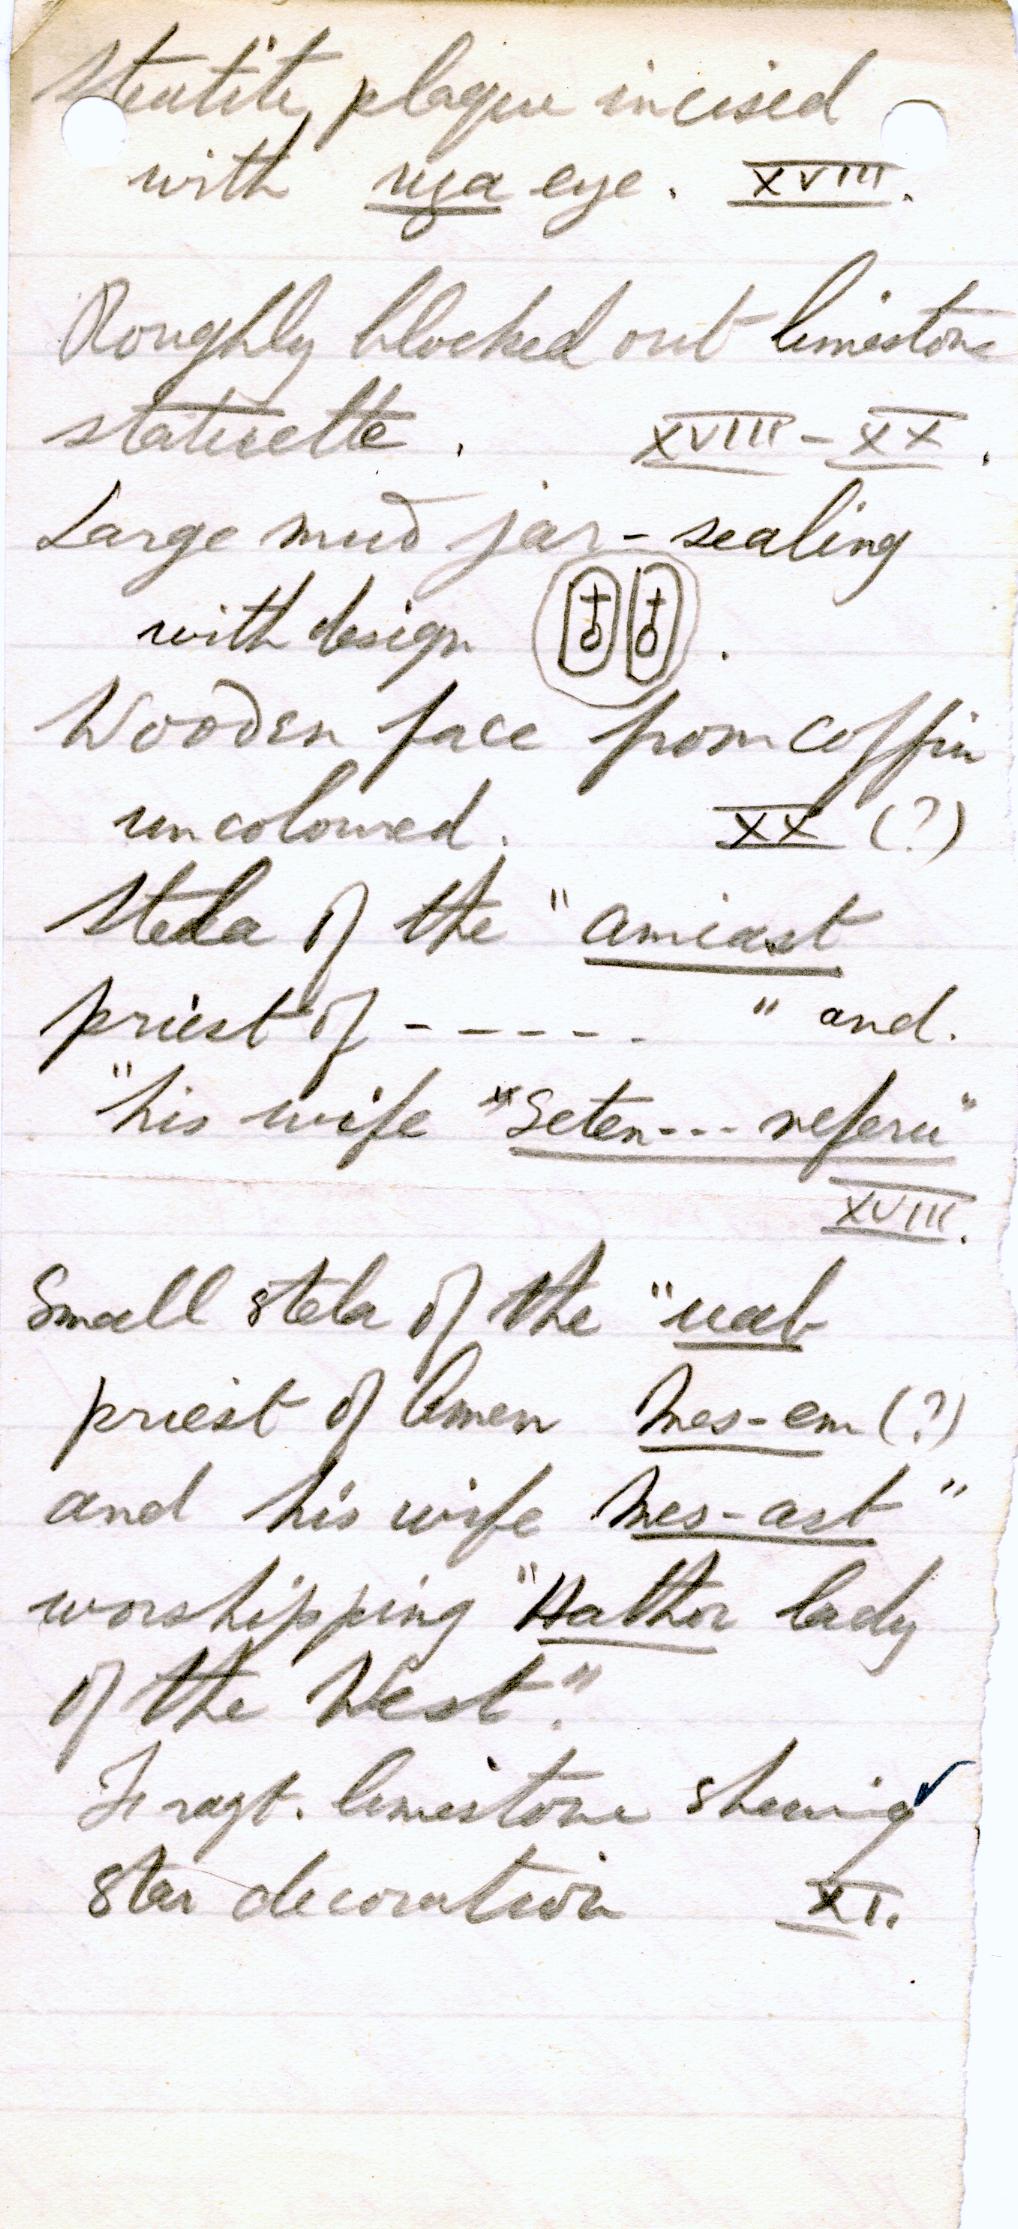 Steatite plaque incised
with uza eye. XVIII.
Roughly blocked out limestone
statuette. XVIII - XX.
Large mud jar-sealing
with design .
Wooden face from coffin
uncoloured. XX (?)
Stela of the "amiast
priest of - - - - - " and.
"his wife "Seten--- neferu"
XVIII.
Small stela of the "uab
priest of Amen Mes-em (?)
and his wife Mes-ast"
worshipping "Hathor lady
of the West."
Fragt. limestone shewing
star decoration XI.